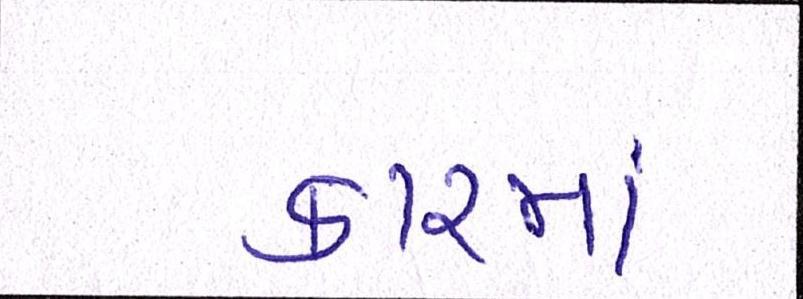 કારમાં